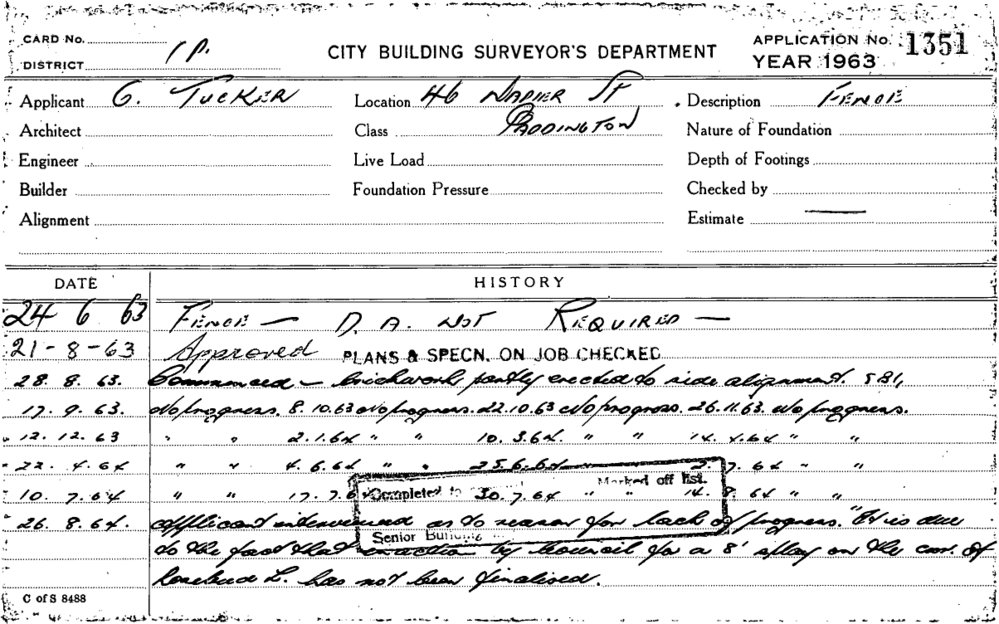 CARD No.
DISTRICT
CITY BUILDING SURVEYOR'S DEPARTMENT
APPLICATION No. 1351
YEAR 1963
Applicant G. TUCKER
Location 46 NAPIER ST
Description FENCE
Architect
Class PADDINGTON
Nature of Foundation
Engineer
Live Load
Depth of Footings
Builder
Foundation Pressure
Checked by
Alignment
Estimate —
DATE HISTORY
24 6 63 FENCE — D. A. NOT REQUIRED —
21-8-63 Approved PLANS & SPECN. ON JOB CHECKED
28. 8. 63. Commenced — brickwork partly erected to side alignment.
17. 9. 63. No progress. 8.10.63 No progress. 22.10.63 No progress. 26.11.63. No progress.
12. 12. 63 " " 2.1.64 " " 10. 3.64. " " 14. 4.64 " "
22. 4. 64 " " 4. 6.64 " " 25.6.64 7. 64 " "
10. 7. 64 " " 17. 7. 64 30. 7. 64 " " 14. 8. 64 " "
Completed Marked off list.
26. 8. 64. Applicant interviewed as to reason for lack of progress. "It is due
Senior
to the fact that by Council for a 8' splay on the cnr. of
Rosebud L. has not been finalised.
C of S 8488